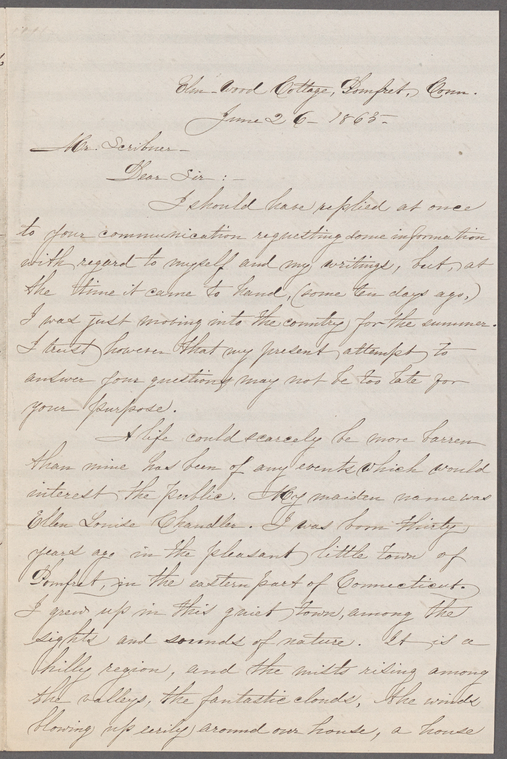 Elm-Wood Cottage, Pomfret, Conn.
June 26 - 1865-
Mr. Scribner -
Dear Sir : -
I should have replied at once
to your communication requesting some information
with regard to myself and my writings, but, at
the time it came to hand, (some ten days ago,)
I was just moving into the country for the summer.
I trust however that my present attempt to
answer your questions may not be too late for
your purpose.
A life could scarcely be more barren
than mine has been of any events which would
interest the public. My maiden name was
Ellen Louise Chandler. I was born thirty
years ago in the pleasant little town of
Pomfret, in the eastern part of Connecticut.
I grew up in this quiet town, among the
sights and sounds of nature. It is a
hilly region, and the mists rising among
the valleys, the fantastic clouds, the winds
blowing up eerily around our house, a house